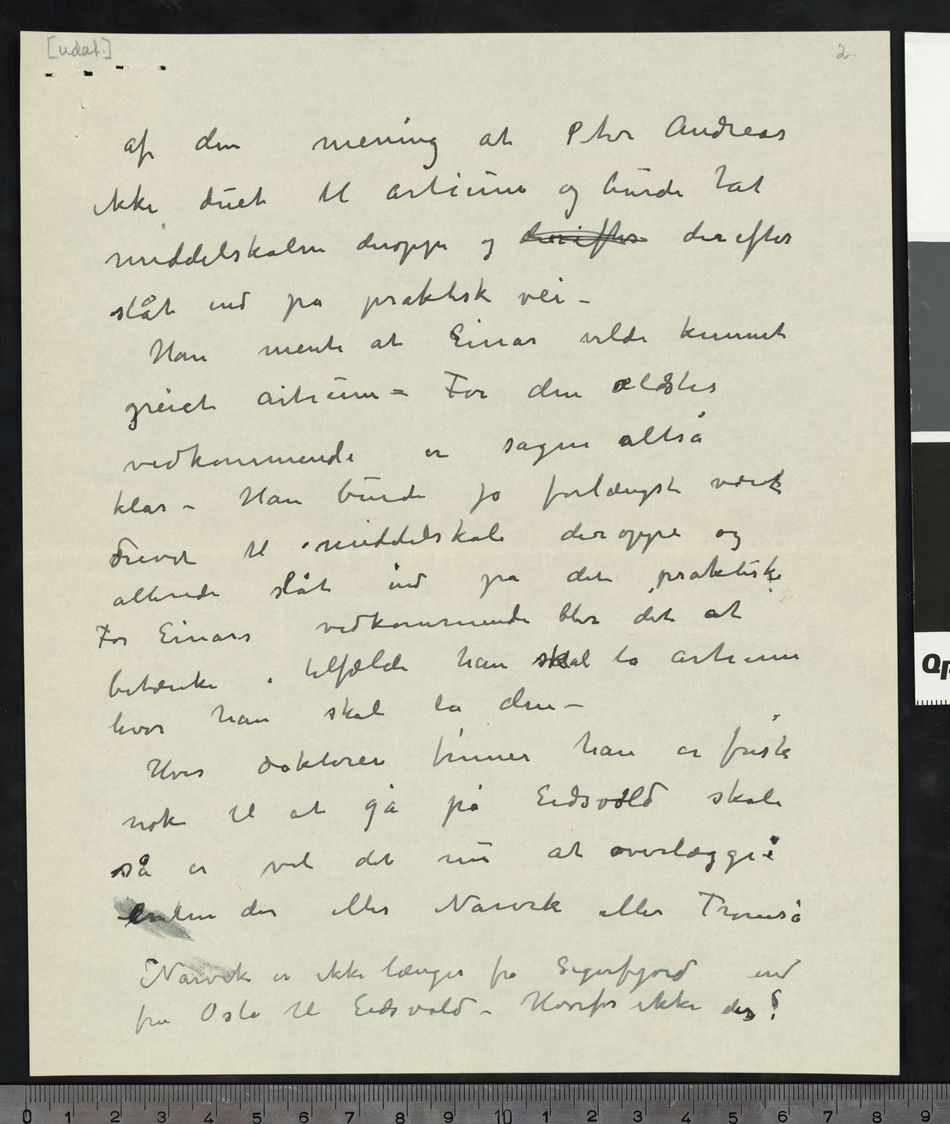 [udat.]
2.
af den mening at Peter Andreas
ikke duet til artium og burde tat
middelskolen deroppe og derefter derefter
slåt ind på praktisk vei –
Han mente at Einar vilde kunnet
greiet artium – For den ældstes
vedkommende er sagen altså
klar – Han burde jo forlængst været
drevet til middelskole deroppe og
allerede slåt ind på det praktiske
For Einars vedkommende blir det at
betænke i tilfælde han skal ta artium
hvor han skal ta den –
Hvis doktoren finner han er frisk
nok til at gå på Eidsvold skole
så er vel det nu at overlægge:
enten der eller Narvik eller Tromsø
Narvik er ikke længer fra Sigerfjord end
fra Oslo til Eidsvold – Hvorfor ikke der?
0 1 2 3 4 5 6 7 8 9 10 1 2 3 4 5 6 7 8 9